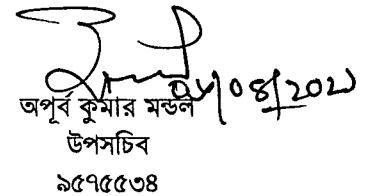 /08/202১
অপূর্ব কুমার মন্ডল
উপসচিব
৯৫৭৫৫৩৪